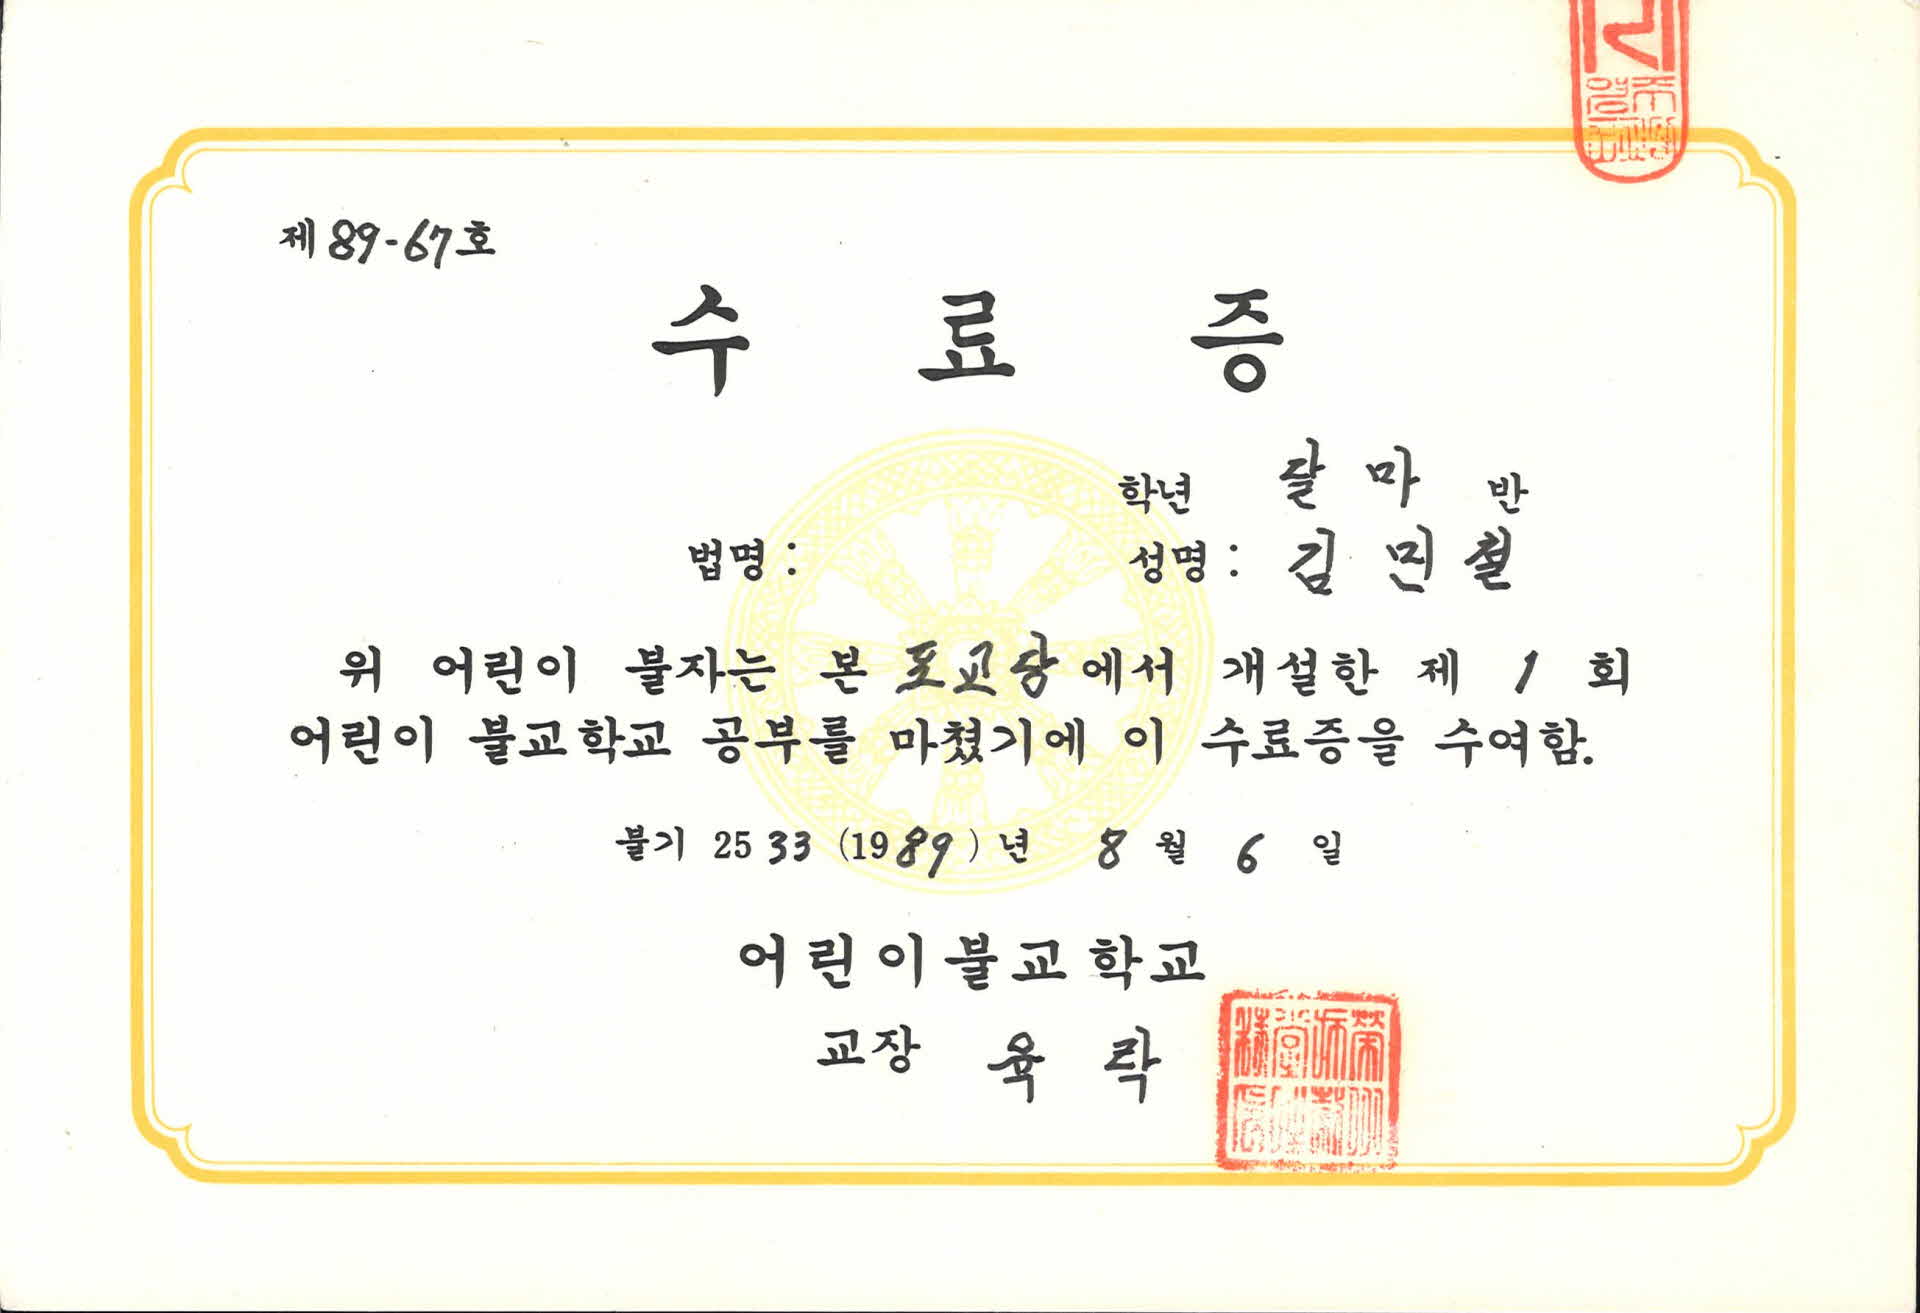 제 89-67 호
수 료 증
학년 달마 반
법명 : 성명 : 김민철
위 어린이 불자는 본 포교당에서 개설한 제 1 회
어린이 불교학교 공부를 마쳤기에 이 수료증을 수여함.
불기 2533 (1989) 년 8 월 6 일
어린이불교학교
교장 육락